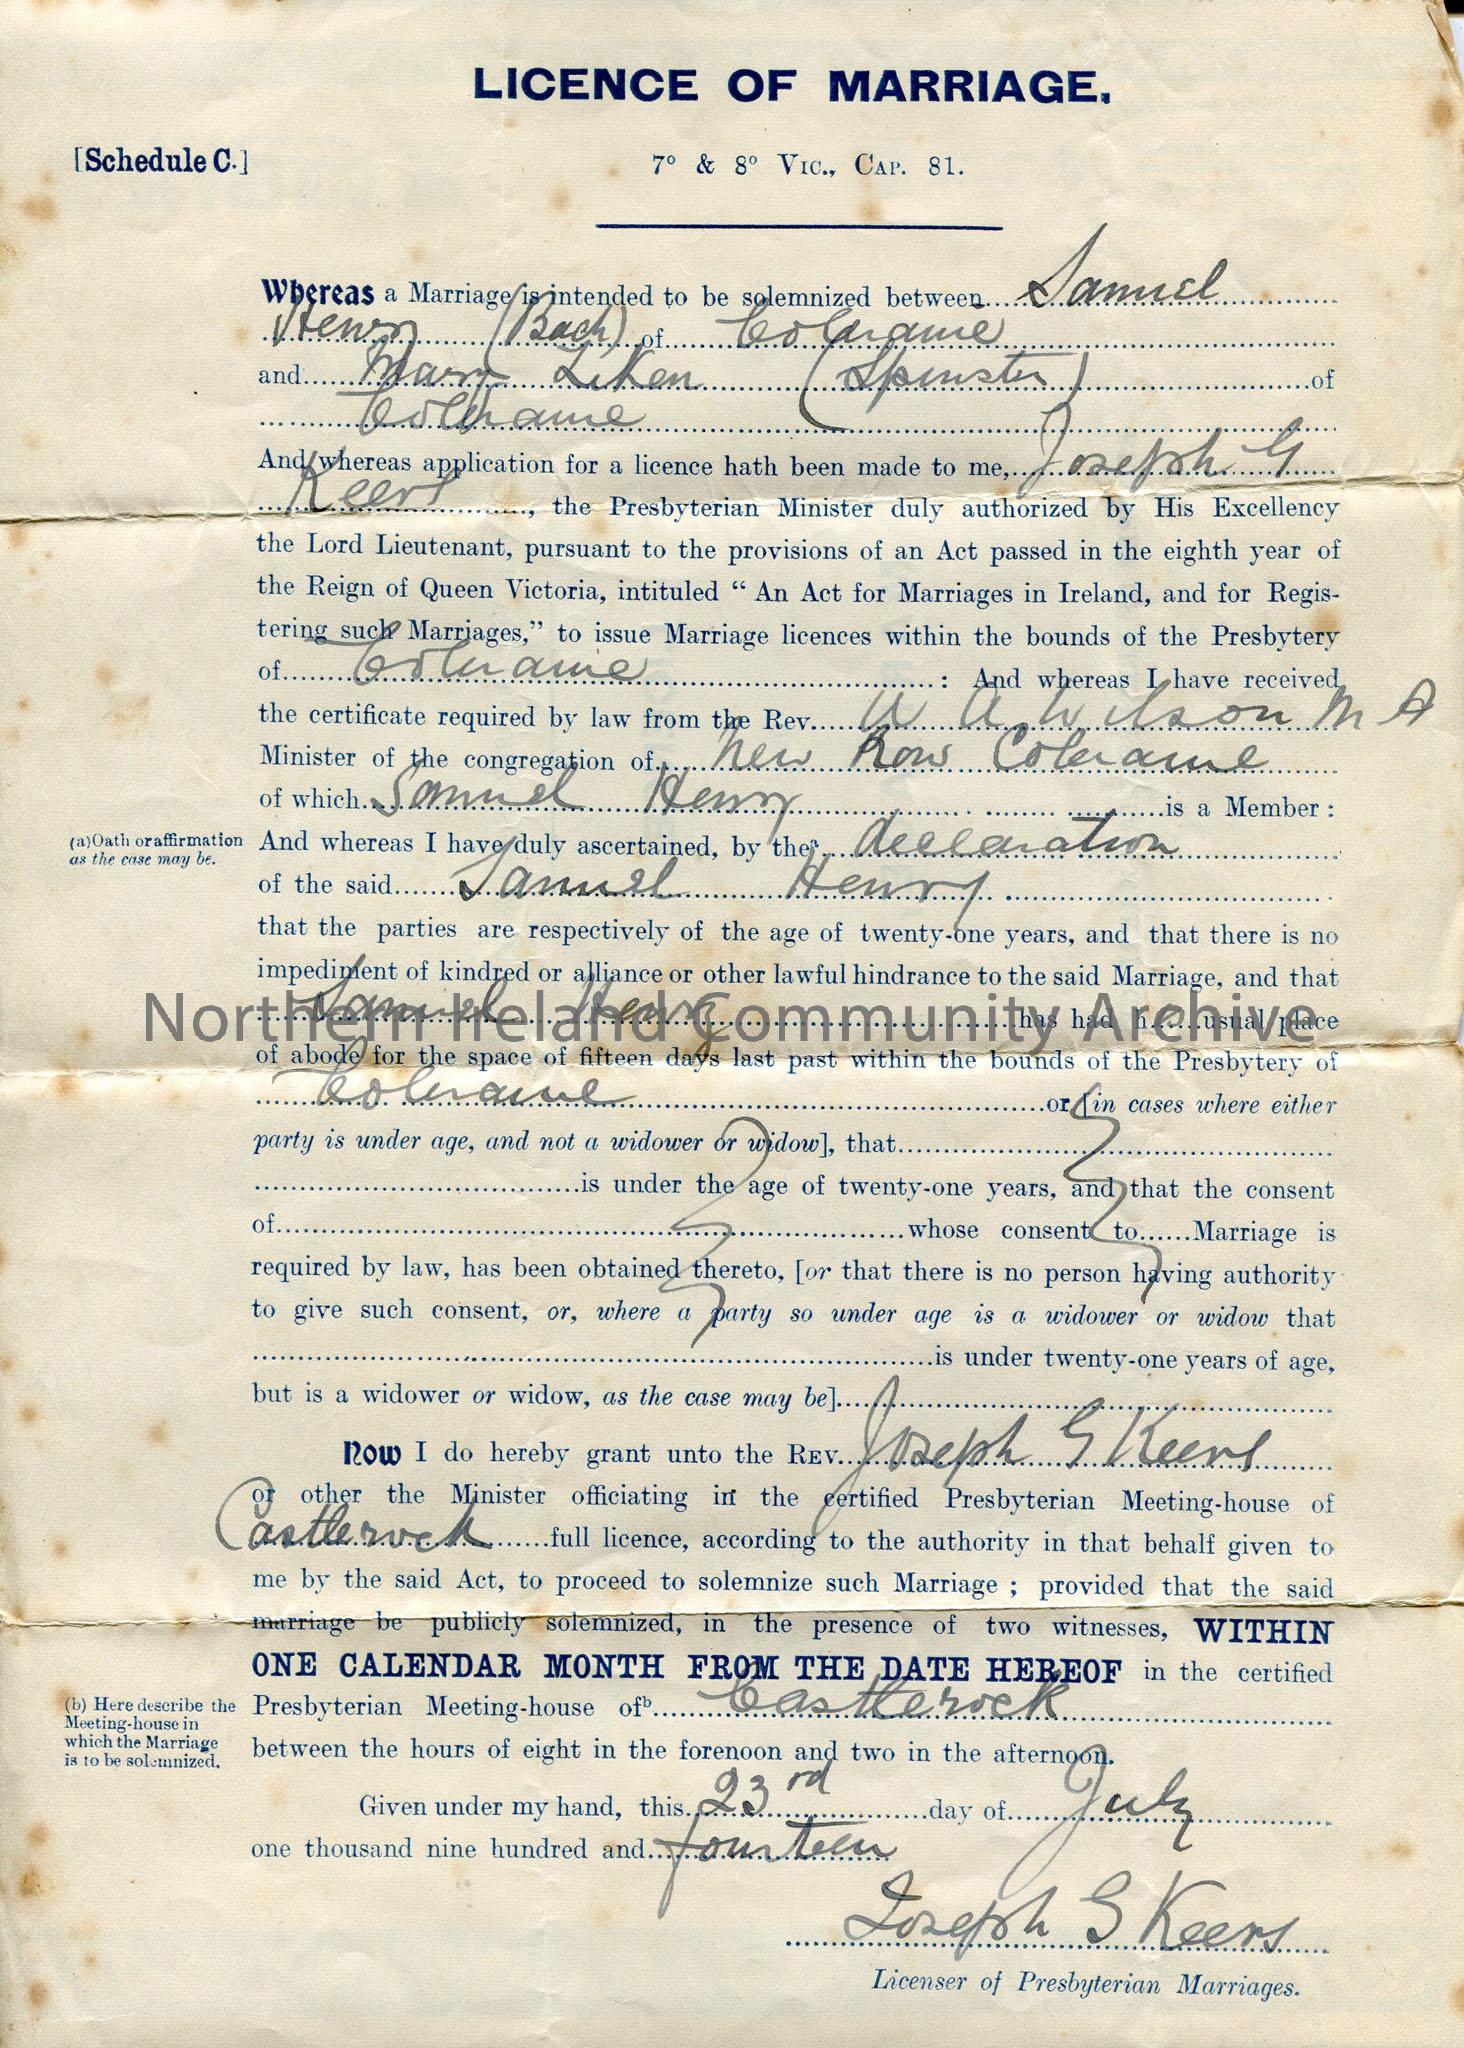 LICENCE OF MARRIAGE.
[Schedule C.]
7° & 8° Vic., Cap. 81.
Whereas a Marriage is intended to be solemnized between Samuel
Henry (Bach) of Coleraine
and Mary Liken (Spinster) of
Coleraine
And whereas application for a licence hath been made to me, Joseph G
Keers, the Presbyterian Minister duly authorized by His Excellency
the Lord Lieutenant, pursuant to the provisions of an Act passed in the eighth year of
the Reign of Queen Victoria, intituled “ An Act for Marriages in Ireland, and for Regis-
tering such Marriages,” to issue Marriage licences within the bounds of the Presbytery
of Coleraine : And whereas I have received
the certificate required by law from the Rev. W A Wilson M A
Minister of the congregation of New Row Coleraine
of which Samuel Henry is a Member :
(a) Oath or affirmation
as the case may be.
And whereas I have duly ascertained, by the a declaration
of the said Samuel Henry
that the parties are respectively of the age of twenty-one years, and that there is no
impediment of kindred or alliance or other lawful hindrance to the said Marriage, and that
Samuel Henry has had h......usual place
Northern Ireland Community Archive
of abode for the space of fifteen days last past within the bounds of the Presbytery of
Coleraine or [in cases where either
party is under age, and not a widower or widow], that
is under the age of twenty-one years, and that the consent
of whose consent to......Marriage is
required by law, has been obtained thereto, [or that there is no person having authority
to give such consent, or, where a party so under age is a widower or widow that
is under twenty-one years of age,
but is a widower or widow, as the case may be]
Now I do hereby grant unto the Rev. Joseph G Keers
or other the Minister officiating in the certified Presbyterian Meeting-house of
Castlerock full licence, according to the authority in that behalf given to
me by the said Act, to proceed to solemnize such Marriage ; provided that the said
marriage be publicly solemnized, in the presence of two witnesses, WITHIN
ONE CALENDAR MONTH FROM THE DATE HEREOF in the certified
(b) Here describe the
Meeting-house in
which the Marriage
is to be solemnized.
Presbyterian Meeting-house of b Castlerock
between the hours of eight in the forenoon and two in the afternoon.
Given under my hand, this 23rd day of July
one thousand nine hundred and fourteen
Joseph G Keers
Licenser of Presbyterian Marriages.